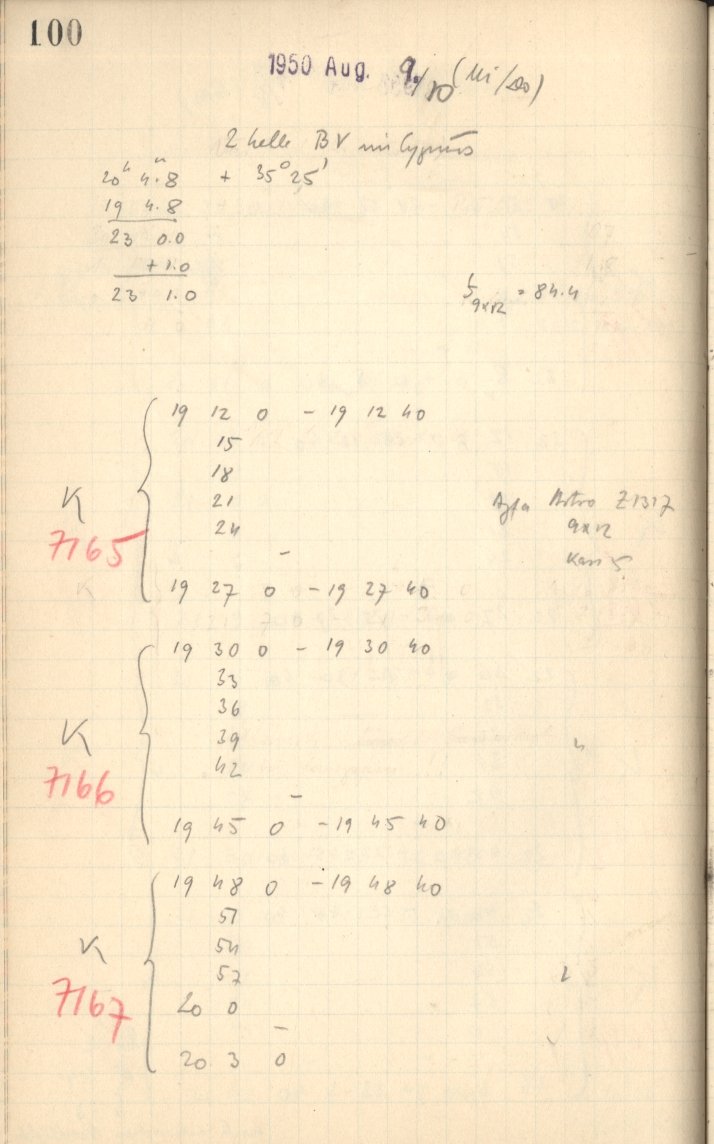 100
1950 Aug. 9./10 (Mi/Do)
2 helle BV im Cygnus
20h 4.8m + 35° 25'
19 4.8
23 0.0
+1.0
23 1.0
9x12 = 84.4
19 12 0 - 19 12 40
15
18
21
24
-
19 27 0 - 19 27 40
K
7165
Agfa Astro Z1317
9x12
Kass 5
19 30 0 - 19 30 40
33
36
39
42
-
19 45 0 - 19 45 40
K
7166
"
19 48 0 - 19 48 40
51
54
57
20 0
-
20 3 0
K
7167